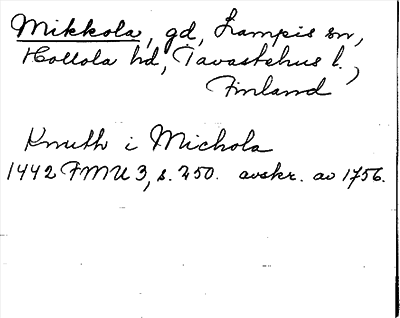 Mikkola, gd, Lampis sn,
Hollola hd, Tavastehus l.,
Finland
Knuth i Michola
1442 FMU 3, s. 250. avskr. av 1756.